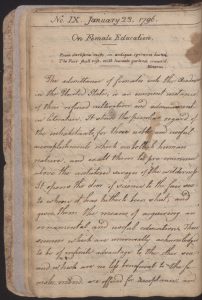 No. IX. January 23. 1796.
On Female Education.
The admittance of female into the
in the United States, is an eminent instance
of their refined and advancement
in literature. It stands the peculiar regard of
the inhabitants for those noble and useful
accomplishments which ennoble human
nature, and exalt them to pre-eminence
above the untutored savages of the wilderness.
It opens the door of science to the fair sex
to whom it has hitherto been shut, and
gives them the means of acquiring an
ornamental and useful education. Those
sciences which are universally acknowledged
to be of infinite advantage to the other sex
and which are no less beneficial to the fe-
male, indeed are offered for acceptance and